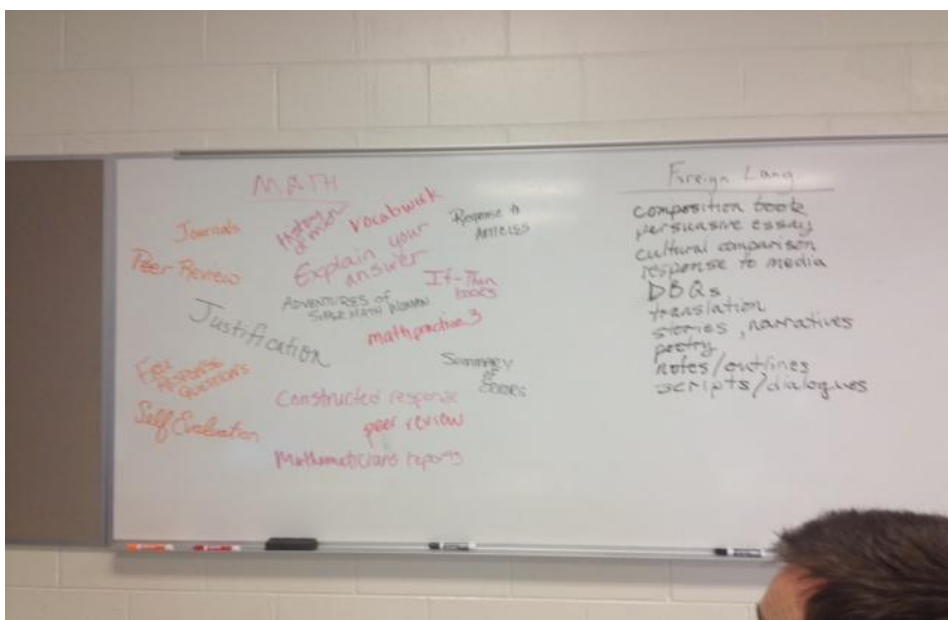 MATH
Journals
History
of math
vocabwork
Response to
Articles
Peer Review
Explain your
answer
If-Then
books
ADVENTURES of
SUPER MATH WOMAN
Justification
math practice 3
Free
RESPONSE
QUESTIONS
Summary
of
ERRORS
Constructed response
Self Evaluation
peer review
Mathematicians reports
Foreign Lang.
composition book
persuasive essay
cultural comparison
response to media
DBQs
translation
stories, narratives
poetry
notes/outlines
scripts/dialogues